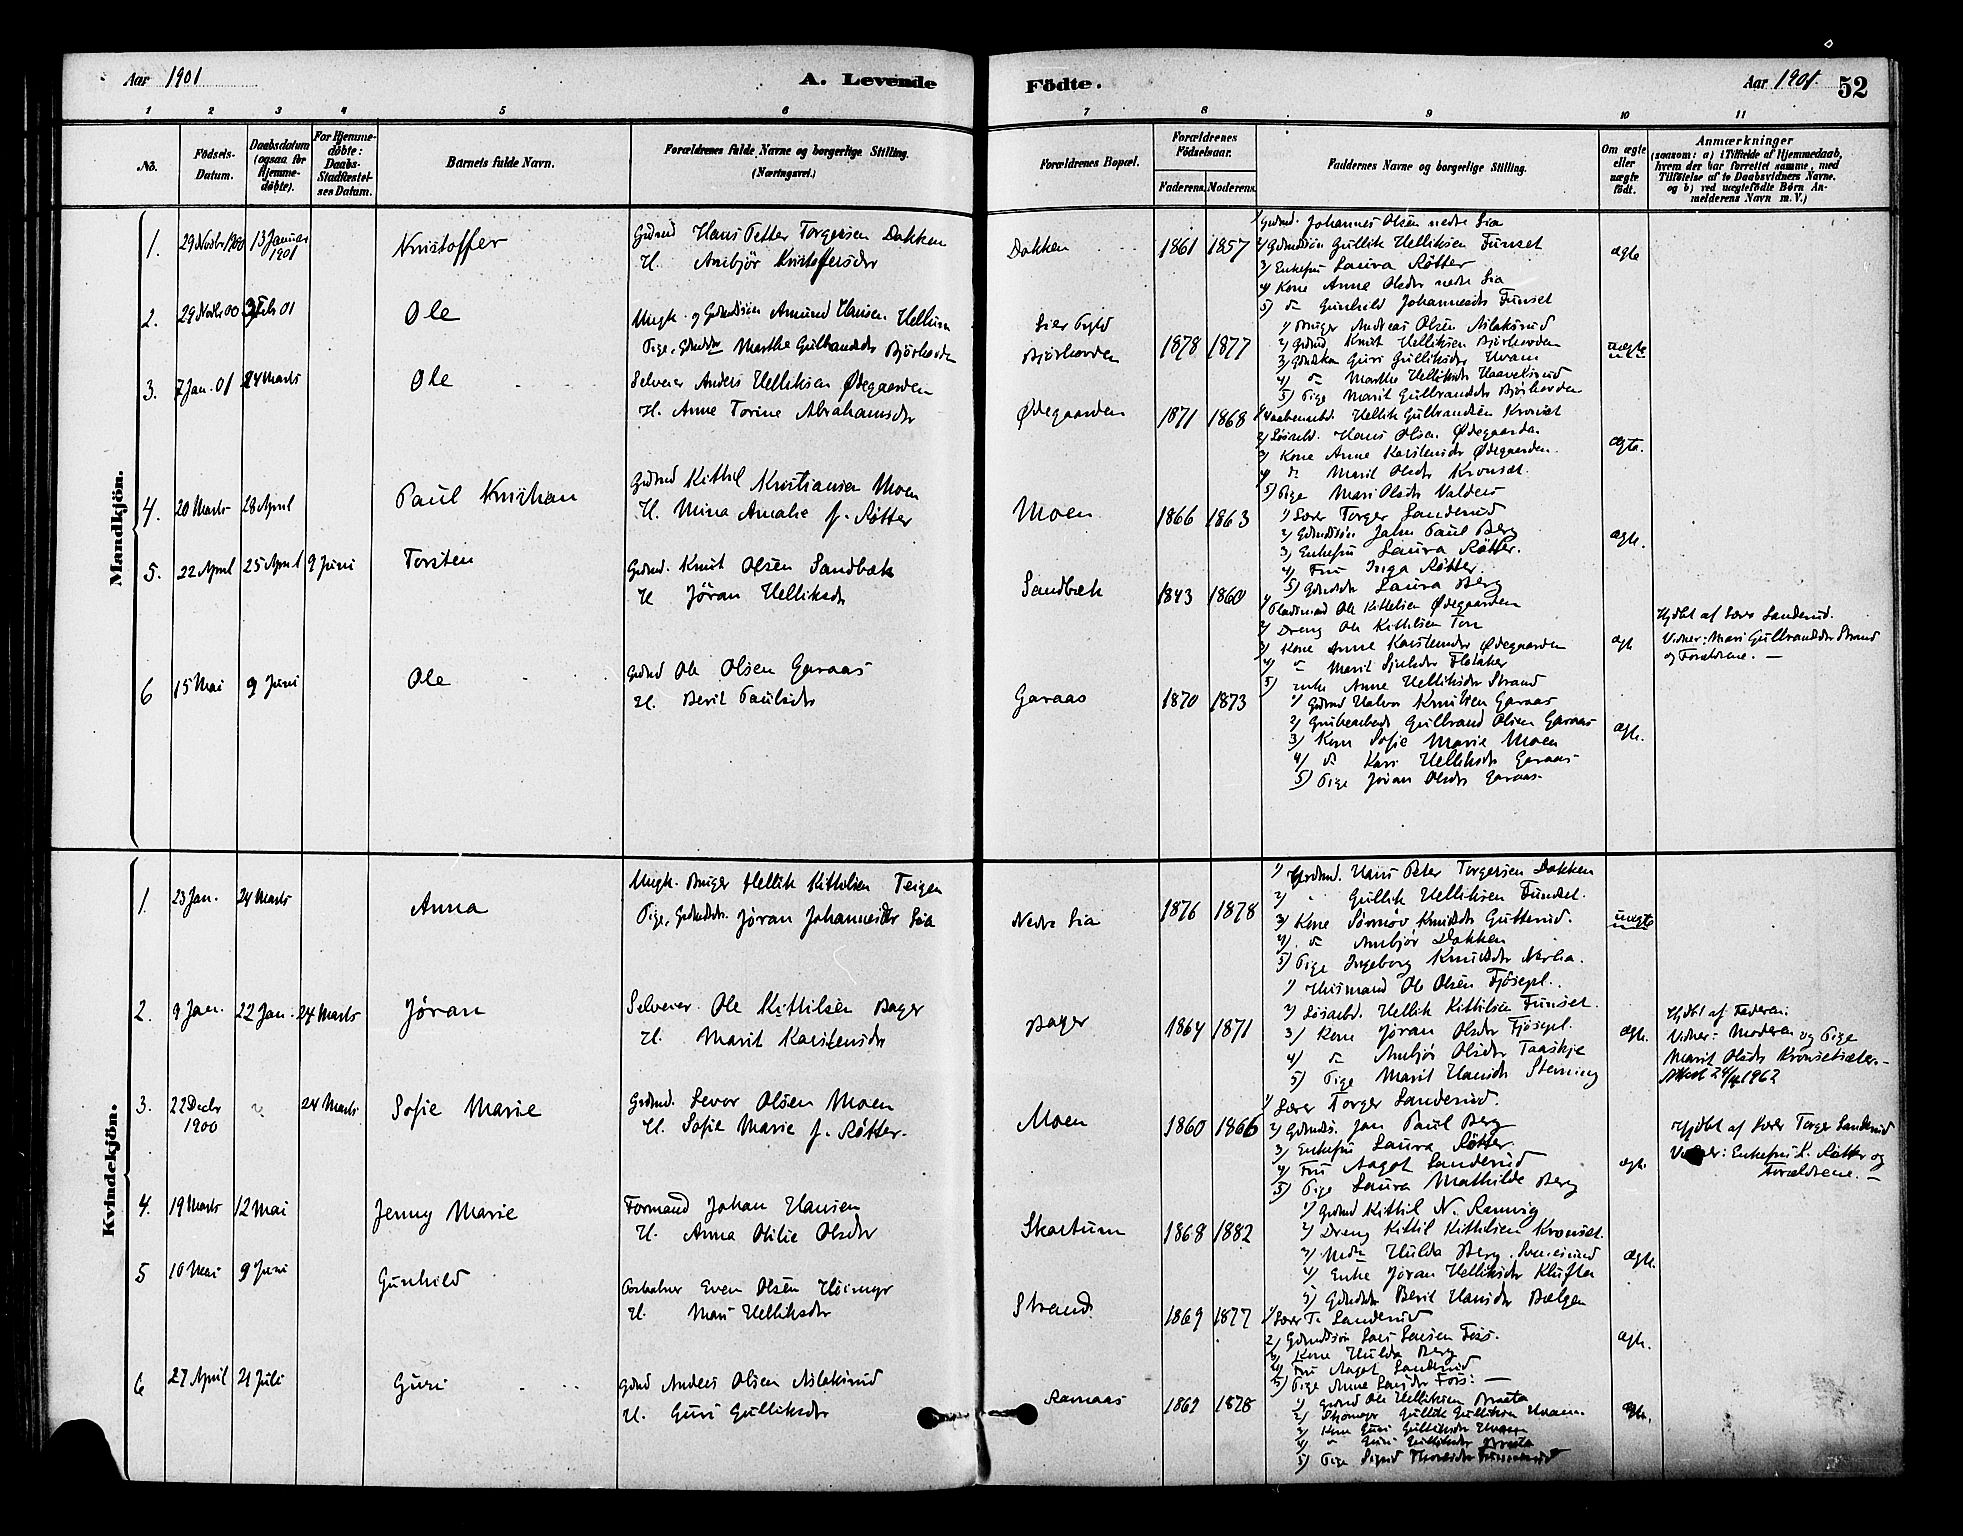 Aar 1901
A. Levende
Födte.
Aar 1901.
52
1 2 3 4 5 6 7 8 9 10 11
No.
Födsels-Datum.
Daabsdatum (ogsaa for Hjemme-döbte).
For Hjemme-döbte: Daabs-Stadfæstel-ses Datum.
Barnets fulde Navn.
Forældrenes fulde Navne og borgerlige Stilling. (Næringsvei.)
Forældrenes Bopæl.
Forældrenes Födselsaar.
Faderens. Moderens.
Faddernes Navne og borgerlige Stilling.
Om ægte eller uægte födt.
Anmærkninger
(saasom: a) i Tilfælde af Hjemmedaab,
hvem der har forrettet samme, med
Tilföielse af to Daabsvidners Navne,
og b) ved uægtefödte Börn An-
melderens Navn m. V.)
Mandkjön.
1. 29 Novbr 1900 13 Januar 1901 Kristoffer
Gdmd Hans Petter Torgersen Dokken
H. Anbjör Kristofersdr
Dokken 1861 1857
1) Gdmd. Johannes Olsen nedre Lia
2) Gdmdsön Gullik Helliksen Funset
3) Enkefru Laura Røtter
4) Kone Anne Olsdr nedre Lia
5) do Gunhild Johannesdr Funset
ægte
2. 29 Novbr 00 3 Feb 01 Ole
Ungk. og Gdmdsön Amund Hansen Hellum
Pige, Gdmdsdr Marthe Gulbrandsdr Bjørhovden
Lier Pgld
Bjørhovden 1878 1877
1) Bruger Andreas Olsen Aslaksrud
2) Gdmd. Knut Helliksen Bjørhovden
3) Guri Gulliksdr Hvam
4) do Marthe Helliksdr Haavelsrud
5) Pige Marit Gulbrandsdr Bjørhovden
uægte
3. 7 Jan. 01 24 Marts Ole
Selveier Anders Helliksen Ødegaarden
H. Anne Torine Abrahamsdr
Ødegaarden 1871 1868
1) Hellik Gulbrandsen Kronset
2) Løsarbd. Hans Olsen Ødegaarden
3) Kone Anne Karstensdr Ødegaarden.
4) do Marit Olsdr Kronset.
5) Pige Mari Olsdr Valders
ægte.
4. 20 Marts 28 April Paul Kristian
Gdmd Kittil Kristiansen Moen
H. Mina Amalie f. Røtter
Moen 1866 1863
1) Lærer Torger Landerud
2) Gdmdsøn John Paul Berg
3) Enkefru Laura Røtter.
4) Fru Inga Røtter.
5) Gdmdsdr Laura Berg
ægte.
5. 22 April 25 April 9 Juni Torsten
Gdmd. Knut Olsen Sandbæk
H Jøran Helliksdr
Sandbæk 1843 1860
1) Pladsmand Ole Kittilsen Ødegaarden
2) Dreng Ole Kittilsen
3) Kone Anne Karstensdr Ødegaarden
4) do Marit
5) Enke Anne Helliksdr Strand
Hjdbt af Lærer Landerud.
Vidner: Mari Gulbrandsdr Strand
og Forældrene. —
6 15 Mai 9 Juni Ole
Gdmd Ole Olsen Garaas
H. Berit Paulsdr
Garaas 1870 1873
1) Gdmd Halvor Knutsen Garaas
2) Grubearbeid. Gulbrand Olsen Garaas
3) Kone Sofie Marie Moen
4) do Kari Helliksdr Garaas
5) Pige Jøran Olsdr Garaas
ægte.
Kvindekjön.
1. 23 Jan. 24 Marts Anna
Ungk. Bruger Hellik Kittilsen Teigen
Pige, Gdmdsdr. Jøran Johannesdr Lia
Nedre Lia 1876 1878
1) Gdmd. Hans Peter Torgersen Dokken
2) " Gullik Helliksen Funset.
3) Kone Sønnøv Knutsdr Gutterud.
4) do Anbjør Dokken
5) Pige Ingeborg Knutsdr Norlia.
uægte
2. 9 Jan. 22 Jan. 24 Marts Jøran
Selveier Ole Kittilsen Bager
H. Marit Karstensdr
Bager 1864 1871
1) Husmand Ole Olsen Fjøsepl.
2) Løsarbd. Hellik Kittilsen Funset.
3) Kone Jøran Olsdr Fjøsepl.
4) do Anbjør Olsdr
5) Pige Marit Hansdr
ægte.
Hjdbt af Faderen.
Vidner: Moderen og Pige
Marit Olsdr Kronsetsæter.—
24/4 1962
3. 22 Decbr 1900 24 Marts Sofie Marie
Gdmd. Levor Olsen Moen
H. Sofie Marie f. Røtter.
Moen 1860 1866
1) Lærer Torger Landerud.
2) Gdmds. Jan Paul Berg
3) Enkefru Laura Røtter.
4) Fru Aagot Landerud
5) Pige Laura Mathilde Berg
ægte.
Hjdbt af Lærer Torger Landerud
Vidner: Enkefru L. Røtter og
Forældrene. —
4. 19 Marts 12 Mai Jenny Marie
Formand Johan Hansen
H. Anna Otilie Olsdr
Skartum 1868 1882
1) Gdmd Kittil N. Ramvig
2) Dreng Kittil Kittilsen Kronset.
3) Hulda Berg
4) Enke Jøran Helliksdr Kluften
5) Gdmdsdr Berit Hansdr Bælgen
ægte.
5 10 Mai 9 Juni Gunhild
Even Olsen Høimyr
H. Mari Helliksdr
Strand 1869 1877
1) Lærer T. Landerud
2) Gdmdsøn Lars Larsen Foss.
3) Kone Hulda Berg
4) Fru Aagot Landerud
5) Pige Anne Larsdr Foss. —
ægte.
6 27 April 21 Juli Guri
Gdmd Anders Olsen Aslaksrud
H. Guri Gulliksdr
Ramaas
1) Gdmd Ole Helliksen Braata
2) Gullik Gulliksen Hvam.
3) Kone Guri Gulliksdr Hvam
4) " Guri Gulliksdr Braata
5) Pige Sigrid
ægte.